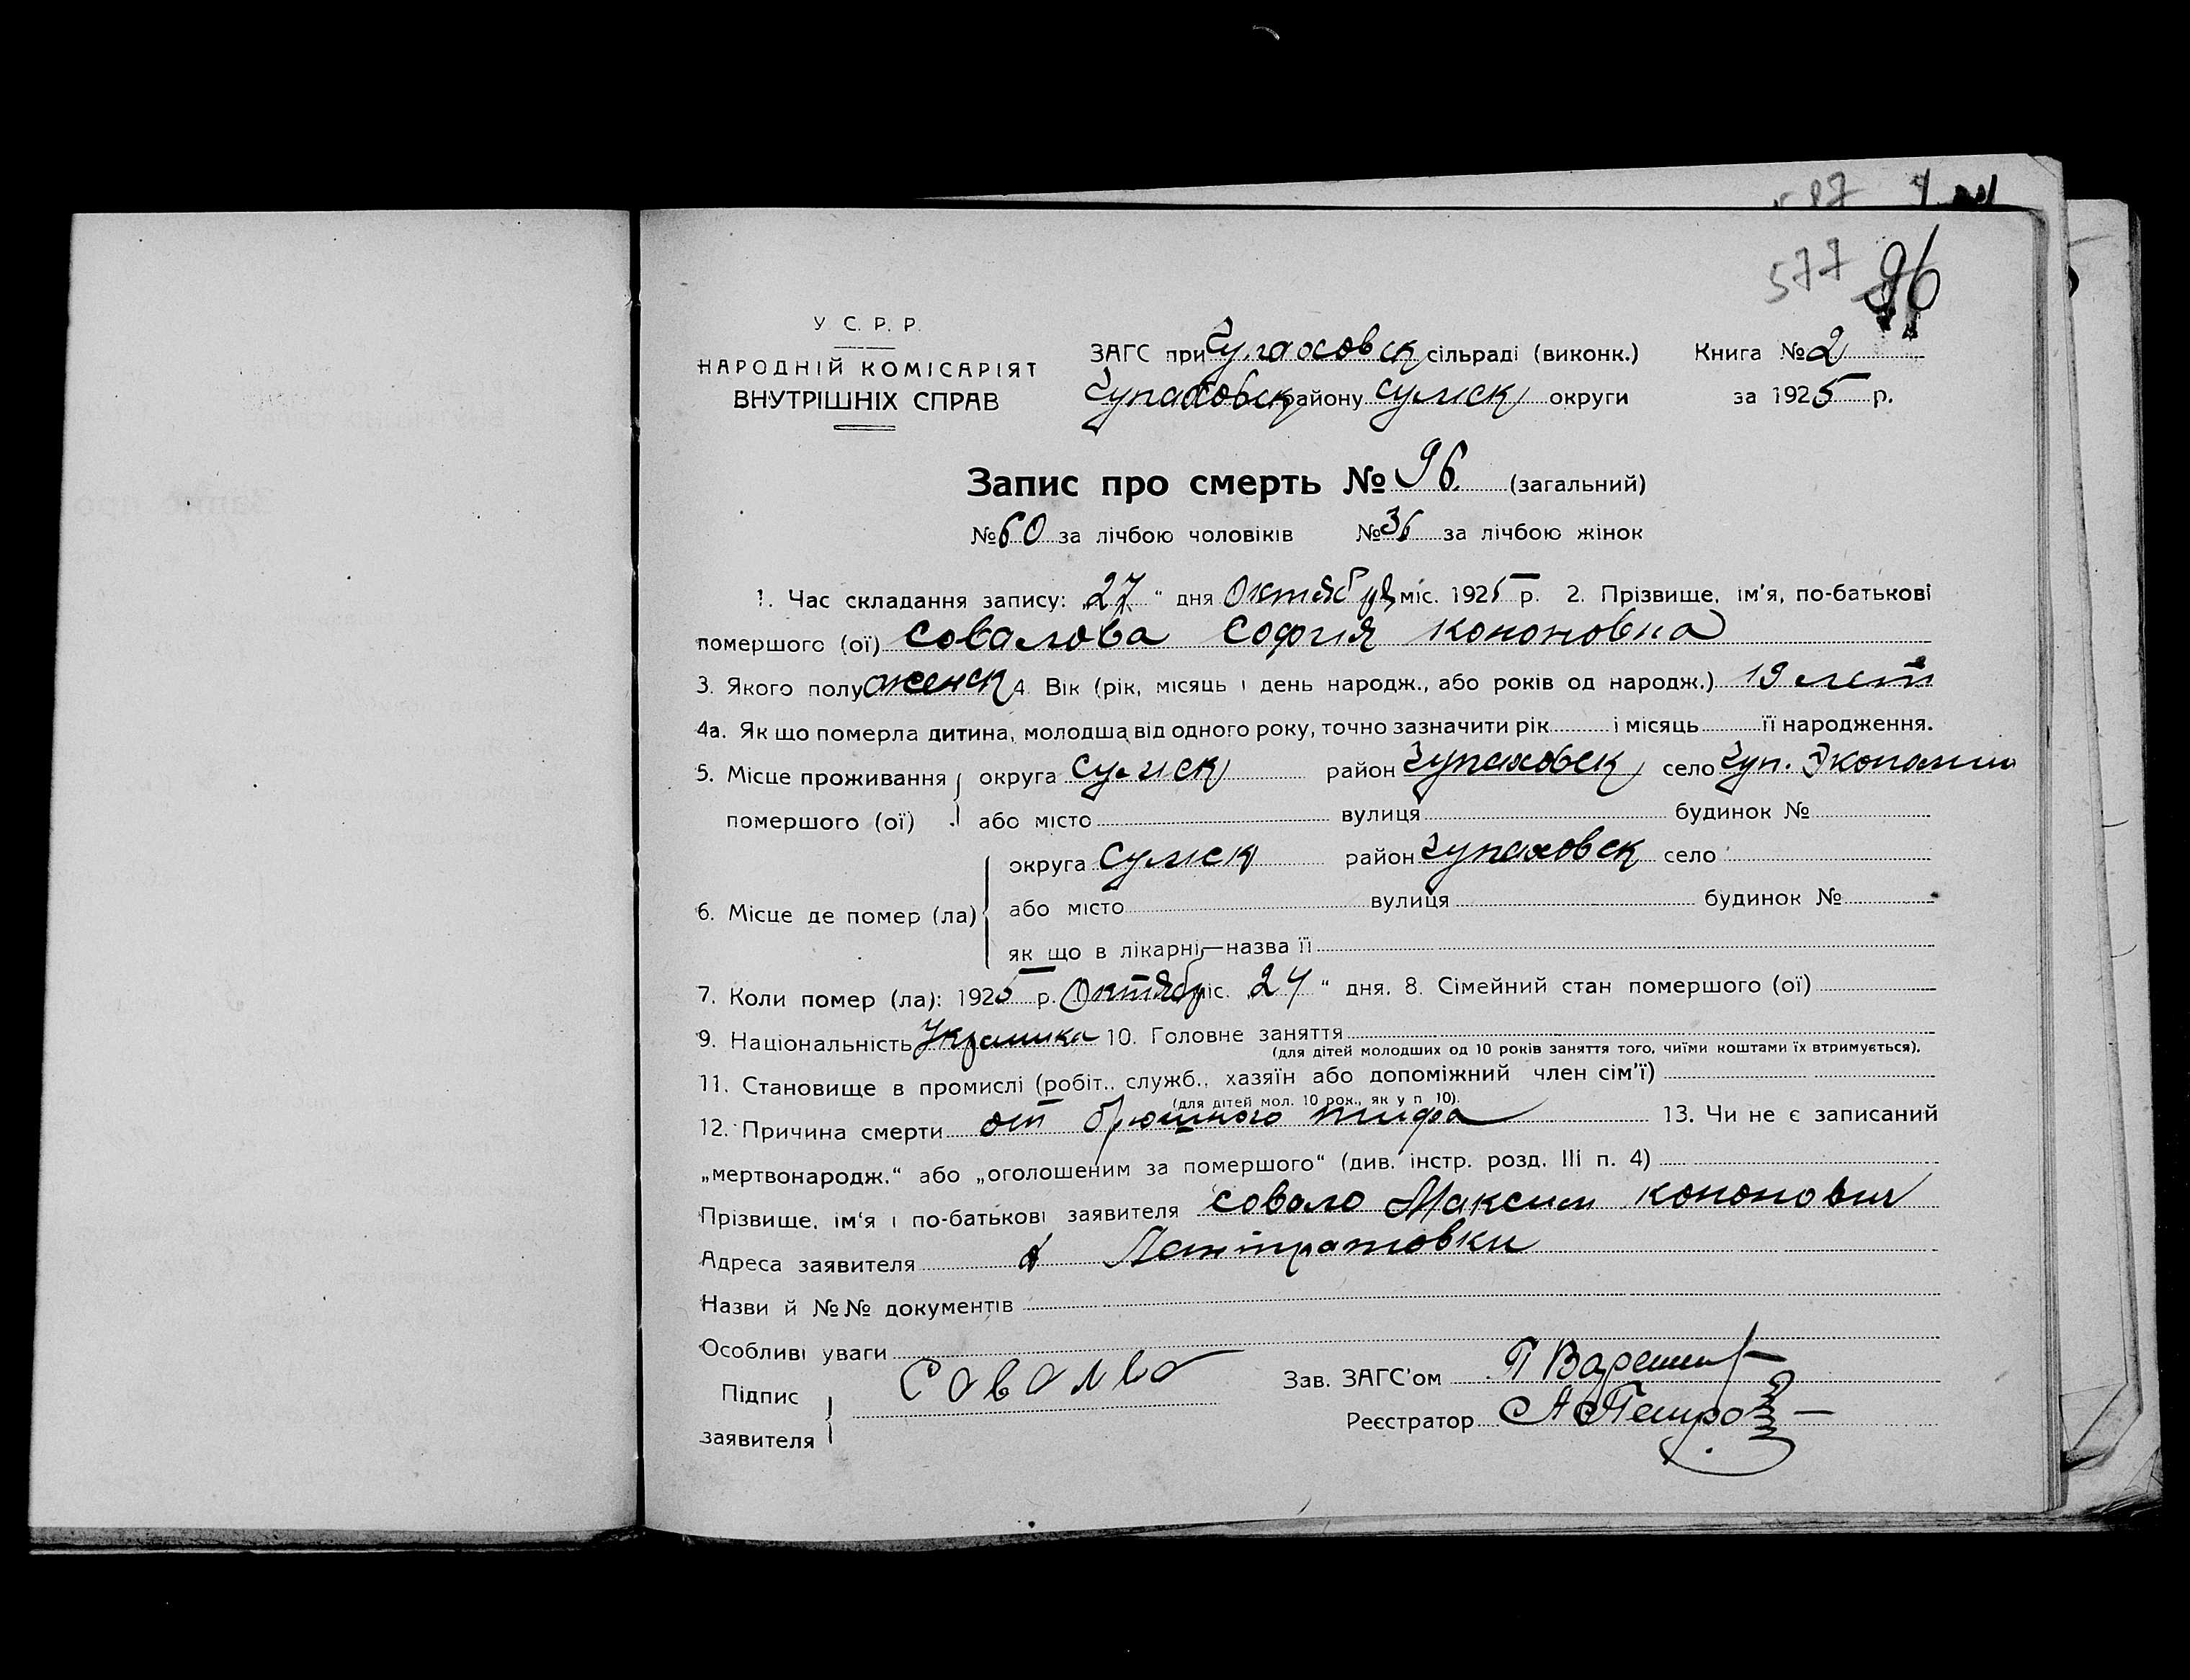 587
577 96
У. С. Р. Р.
НАРОДНІЙ КОМІСАРІЯТ
ВНУТРІШНІХ СПРАВ
ЗАГС при Чупаховск сільраді (виконк.) Книга № 2
Чупаховск району Сумск округи за 1925 р.
Запис про смерть № 96. (загальний)
№ 60 за лічбою чоловіків № 36 за лічбою жінок
1. Час складання запису: „27“ дня Октября міс. 1925 р. 2. Прізвище, ім'я, по-батькові
помершого (ої) Совалова София Кононовна
3. Якого полу женск 4. Вік (рік, місяць і день народж., або років од народж.) 19 лет
4а. Як що померла дитина, молодша від одного року, точно зазначити рік і місяць її народження.
5. Місце проживання округа Сумск район Чупаховск село Чуп. Экономии
помершого (ої) або місто вулиця будинок №
округа Сумск район Чупаховск село
6. Місце де помер (ла) або місто вулиця будинок №
як що в лікарні—назва її
7. Коли помер (ла): 1925 р. Октябр міс. „24“ дня. 8. Сімейний стан помершого (ої)
9. Національність Украинка 10. Головне заняття
(для дітей молодших од 10 років заняття того, чиїми коштами їх втримується).
11. Становище в промислі (робіт., служб., хазяїн або допоміжний член сім'ї)
(для дітей мол. 10 рок., як у п 10).
12. Причина смерти от брюшного тифа 13. Чи не є записаний
„мертвонародж.“ або „оголошеним за помершого“ (див. інстр. розд. III п. 4)
Прізвище, ім'я і по-батькові заявителя Совало Максим Кононович
Адреса заявителя
Назви й №№ документів
Особливі уваги
Підпис
заявителя
Зав. ЗАГС'ом
Реєстратор